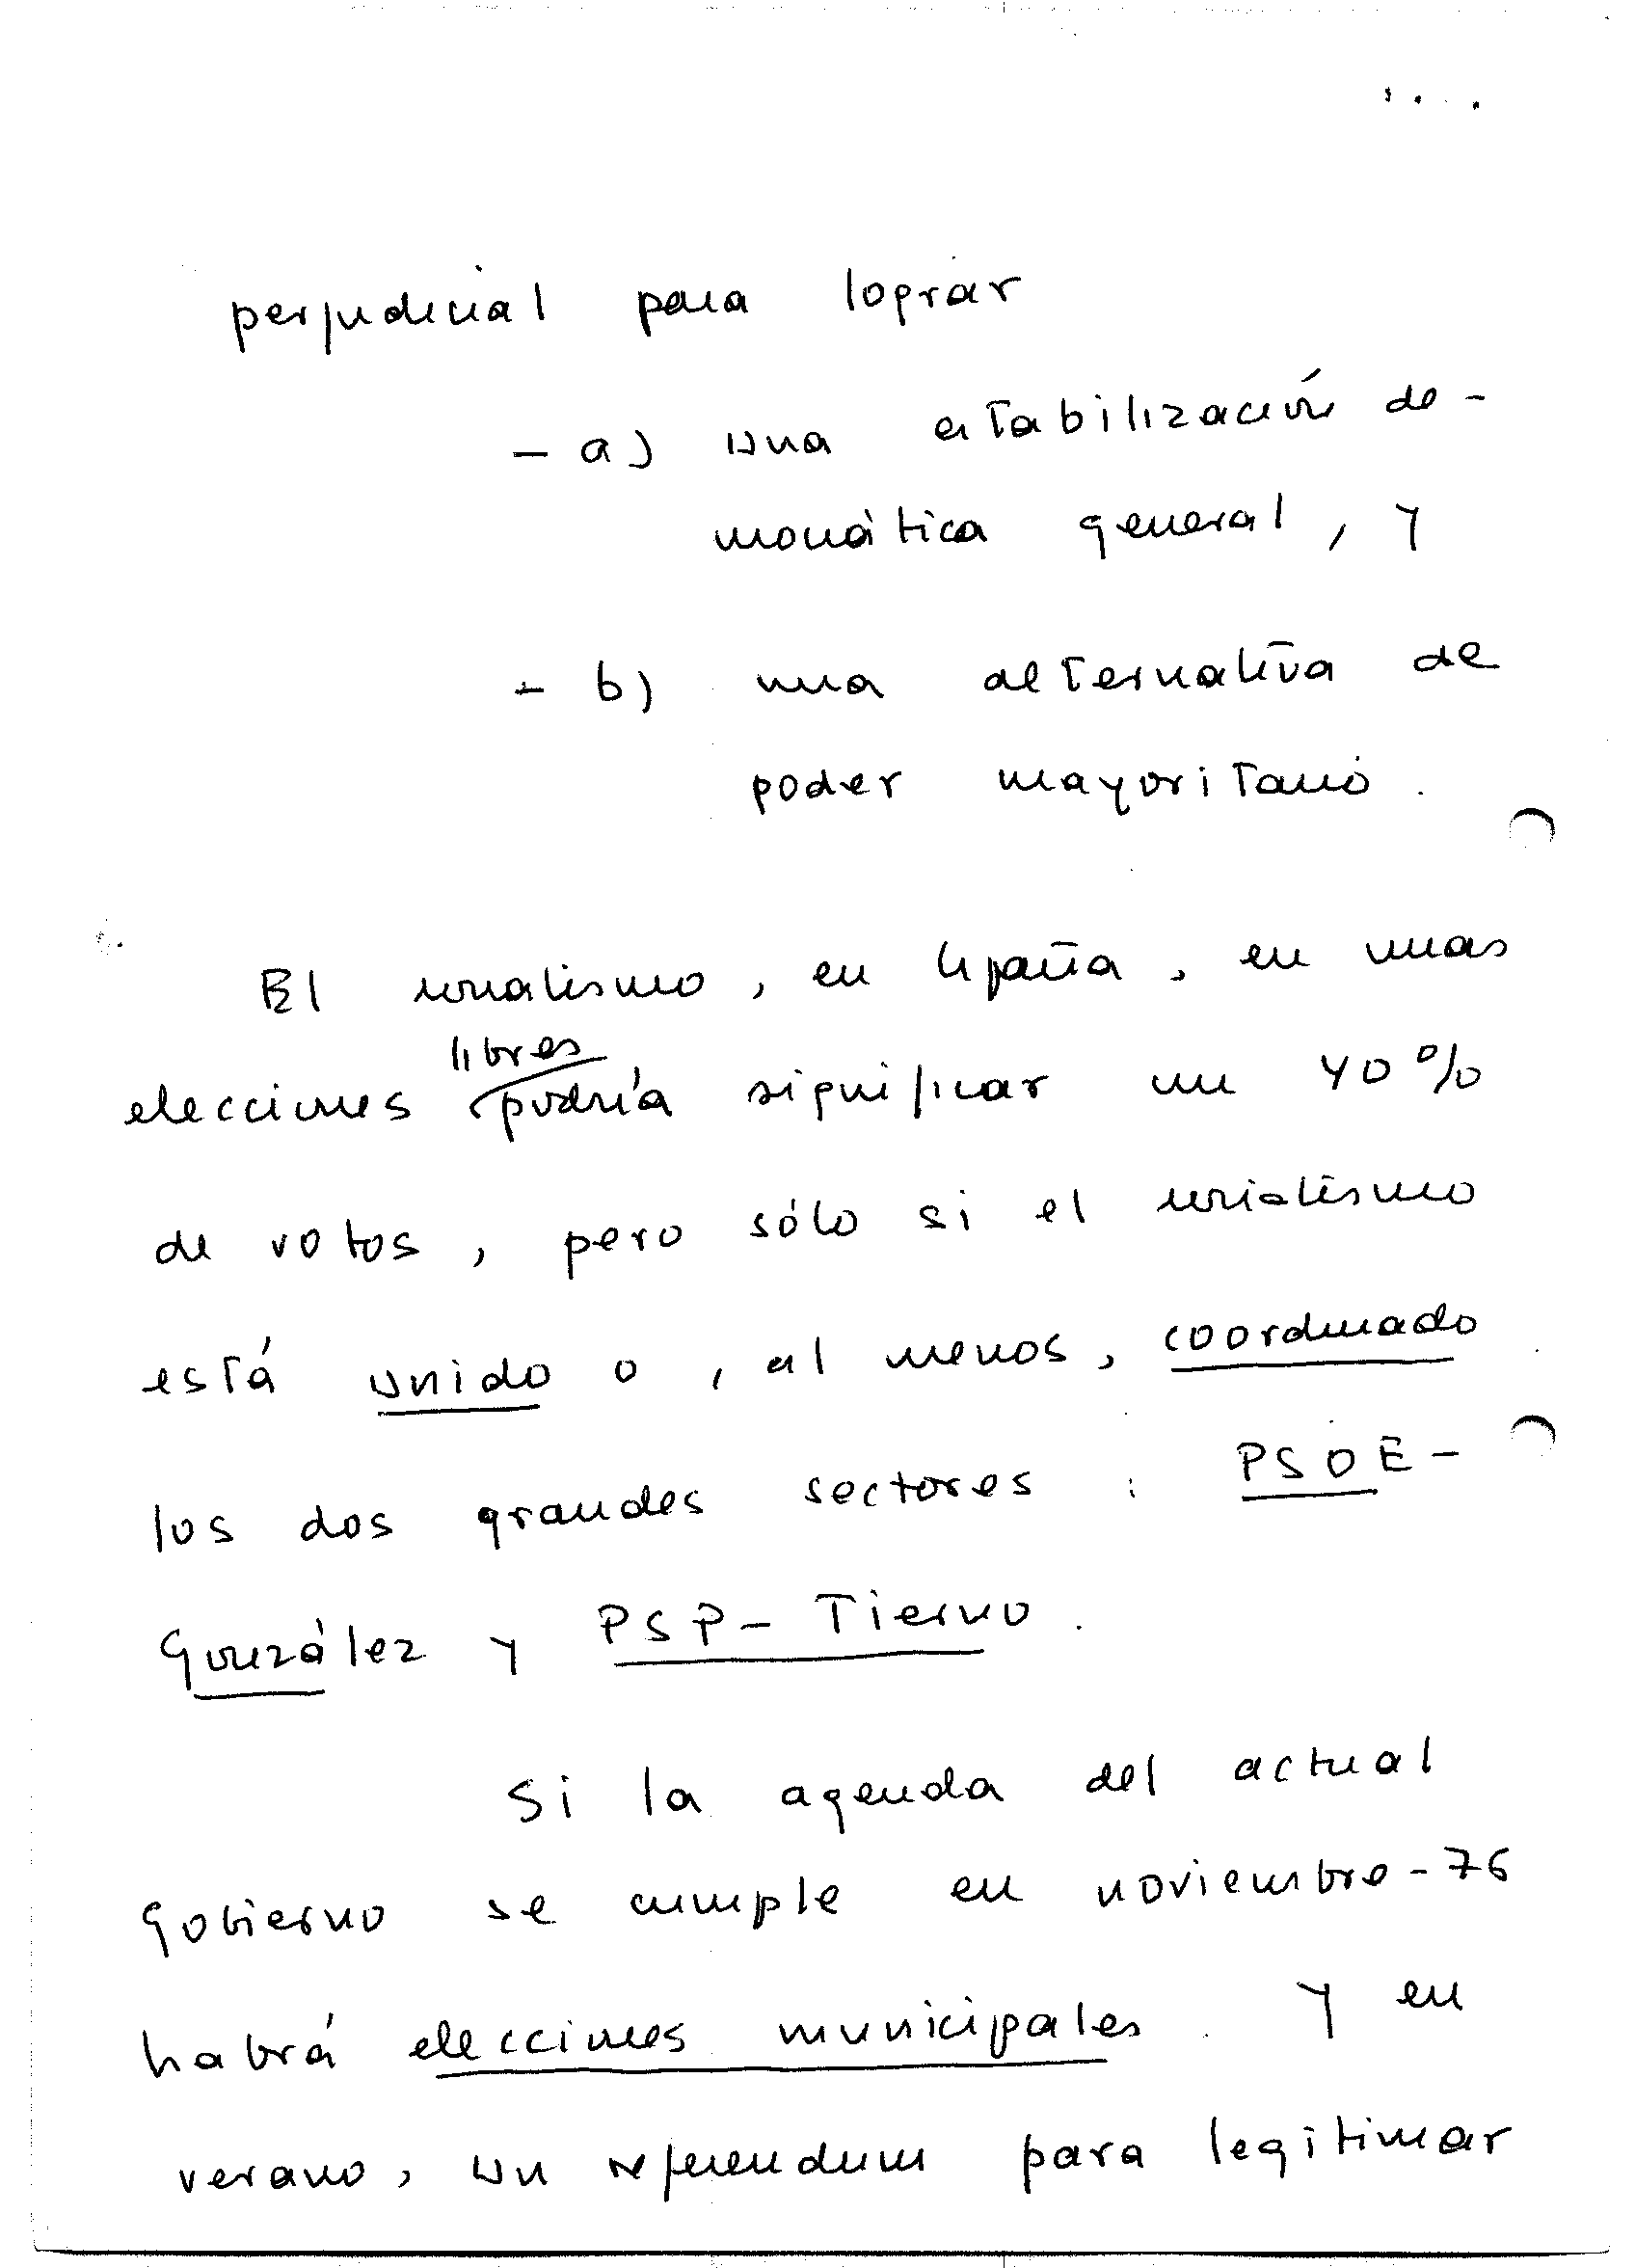 perjudicial para lograr
- a) una estabilización de-
mocrática general, y
- b) una alternativa de
poder mayoritario.
El socialismo, en España, en unas
libres
elecciones podría significar un 40%
de votos, pero sólo si el socialismo
está unido o, al menos, coordinado
los dos grandes sectores: PSOE-
González y PSP- Tierno.
Si la agenda del actual
Gobierno se cumple en noviembre-76
habrá elecciones municipales. Y en
verano, un referendum para legitimar